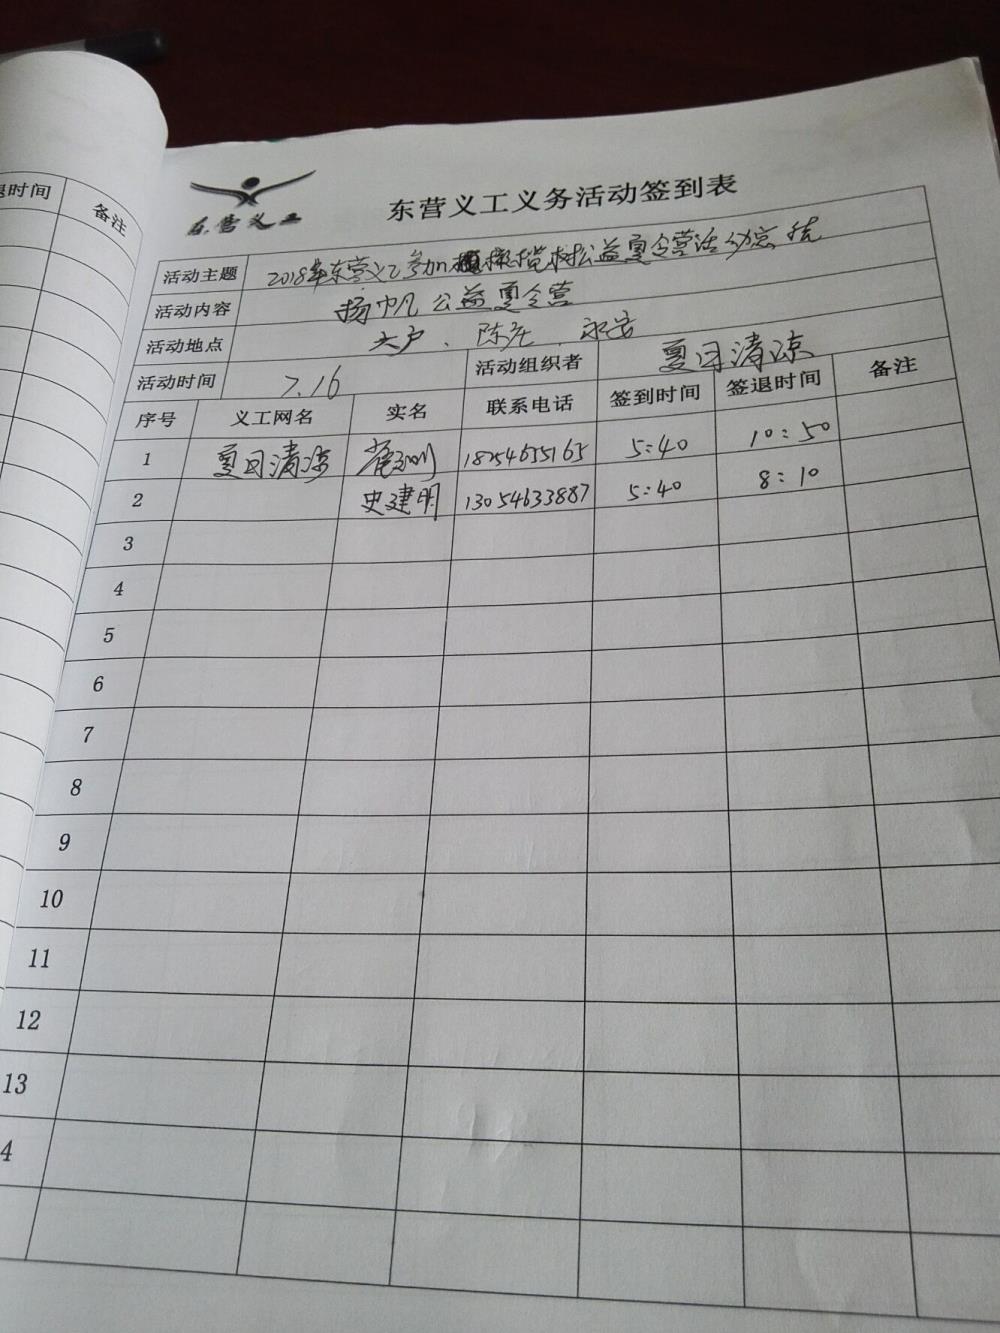 时间 备注
东营义工
东营义工义务活动签到表
活动主题 2018年东营义工参加橄榄树公益夏令营活动
活动内容 扬帆公益夏令营
活动地点 六户、陈庄、永安
活动时间 7.16 活动组织者 夏日清凉
序号 义工网名 实名 联系电话 签到时间 签退时间 备注
1 夏日清凉 18254655165 5:40 10:50
2 史建明 13054633887 5:40 8:10
3
4
5
6
7
8
9
10
11
12
13
4